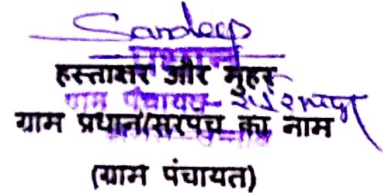 Sandeep
हस्ताक्षर और मुहर
ग्राम पंचायत-
ग्राम प्रधान/सरपंच का नाम
(ग्राम पंचायत)